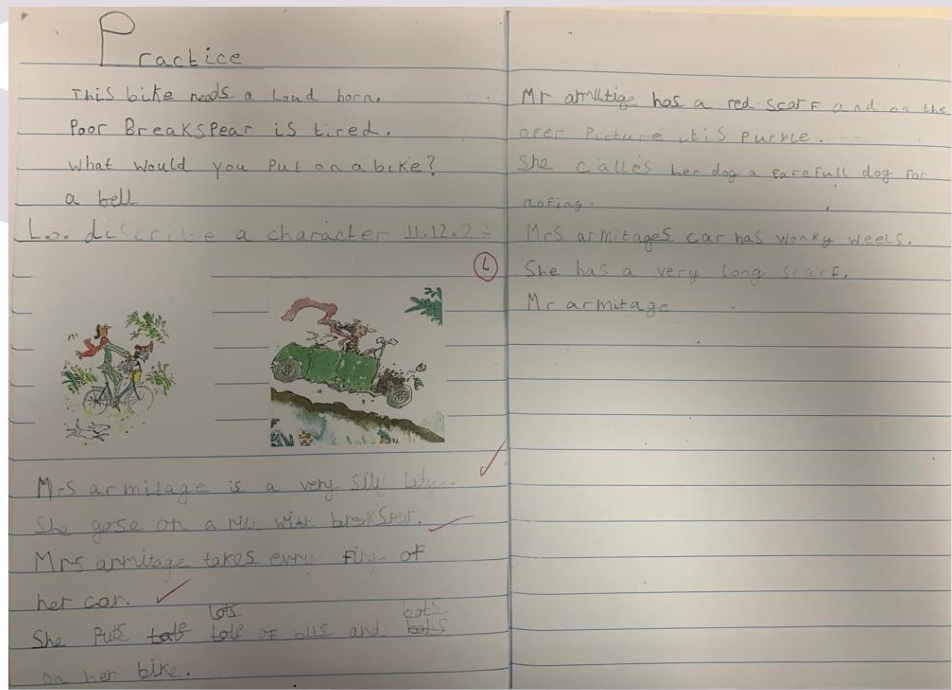 Practice
This bike needs a loud horn.
Poor Breakspear is tired.
What would you put on a bike?
a bell
L.o. discribe a character 11.12.2
L
Mrs armitage is a very silly lady..
She gose on a with
Mrs armitage takes evry fing of
her car.
lots bots
She puts of bits and
on her bike.
Mr has a red scarf and on the
ofer Picture itis purple.
She calles her dog a farefull dog for
nofing.
Mrs armitages car has wonky weels.
She has a very long scarf.
Mr armitage